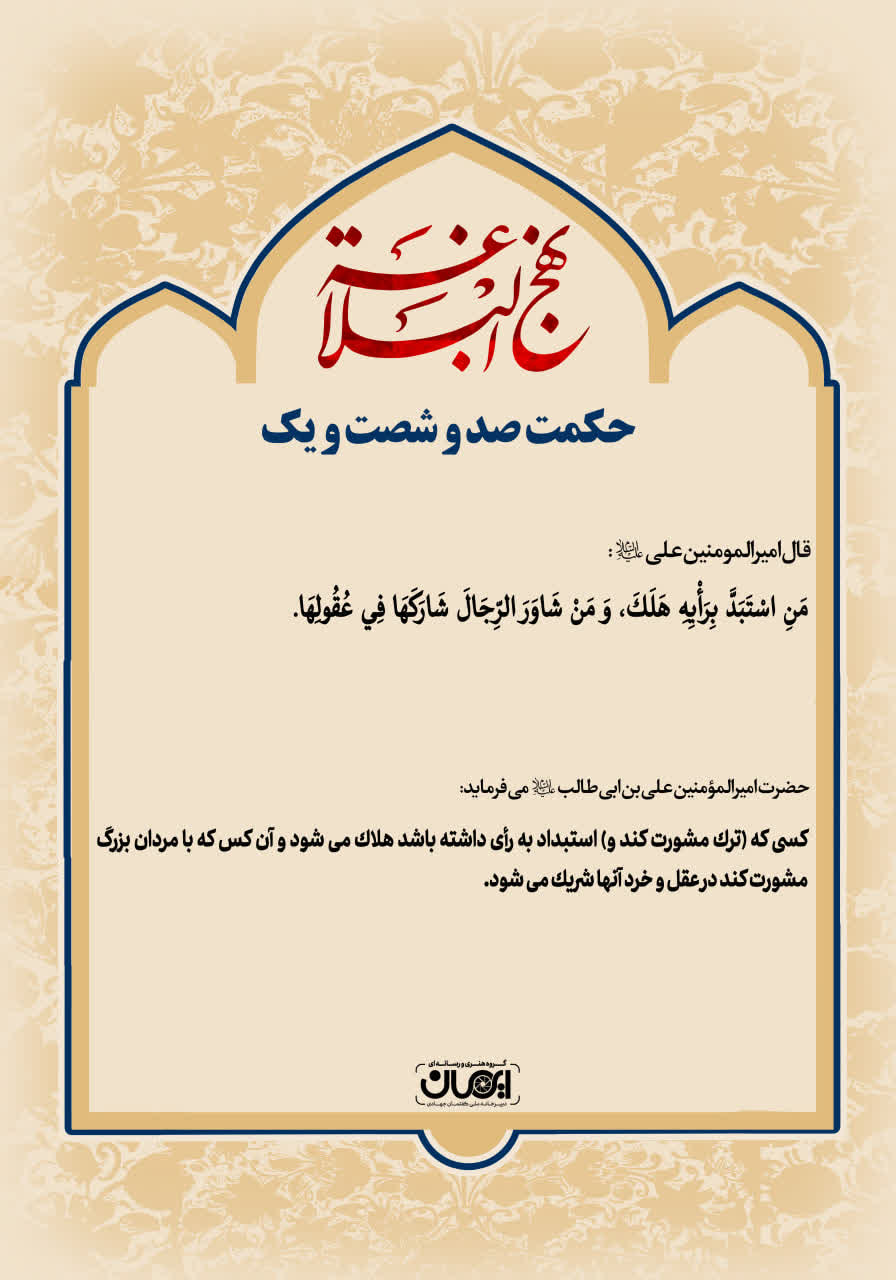 نهج البلاغة
حکمت صد و شصت و یک
قال امیرالمومنین علی علیه‌السلام :
مَنِ اسْتَبَدَّ بِرَأْیِهِ هَلَكَ، وَ مَنْ شَاوَرَ الرِّجَالَ شَارَكَهَا فِي عُقُولِهَا.
حضرت امیرالمؤمنین علی بن ابی طالب علیه‌السلام می فرماید:
کسی که (ترك مشورت کند و) استبداد به رأی داشته باشد هلاك می شود و آن کس که با مردان بزرگ
مشورت کند در عقل و خرد آنها شريك می شود.
گروه هنری و رسانه ای
دبیرخانه ملی گفتمان جهادی